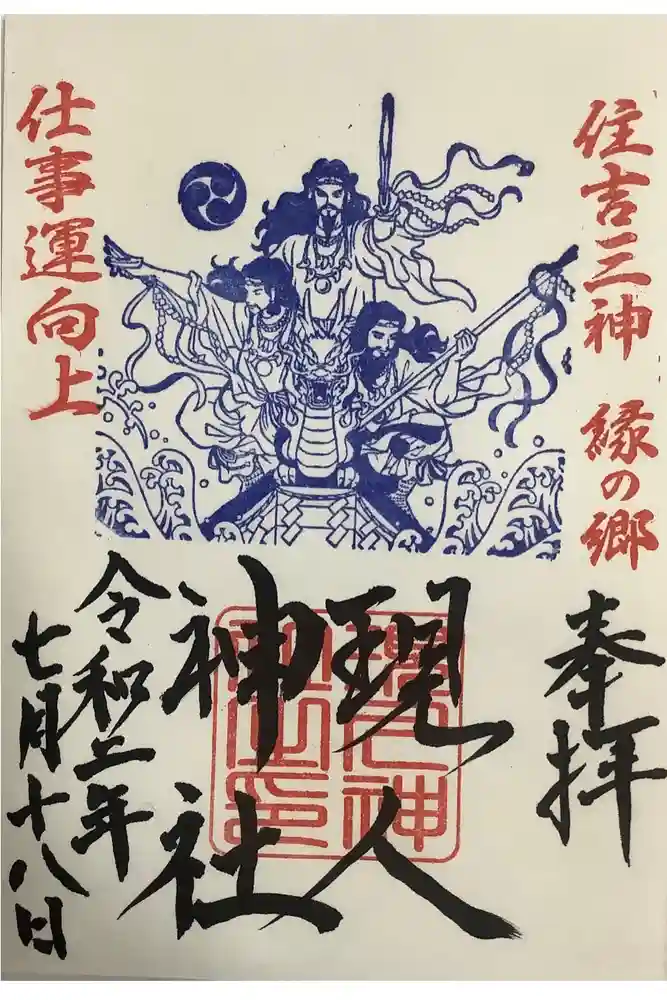 住吉三神 縁の郷
仕事運向上
奉拝
現人
神社
現人神
社之印
令和二年
七月十八日